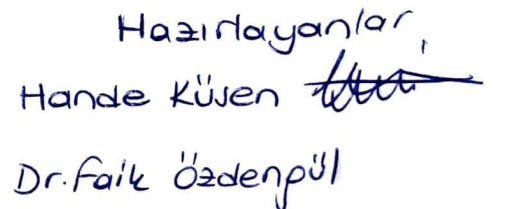 Hazırlayanlar,
Hande Küsen
Dr. Faik Özdengül